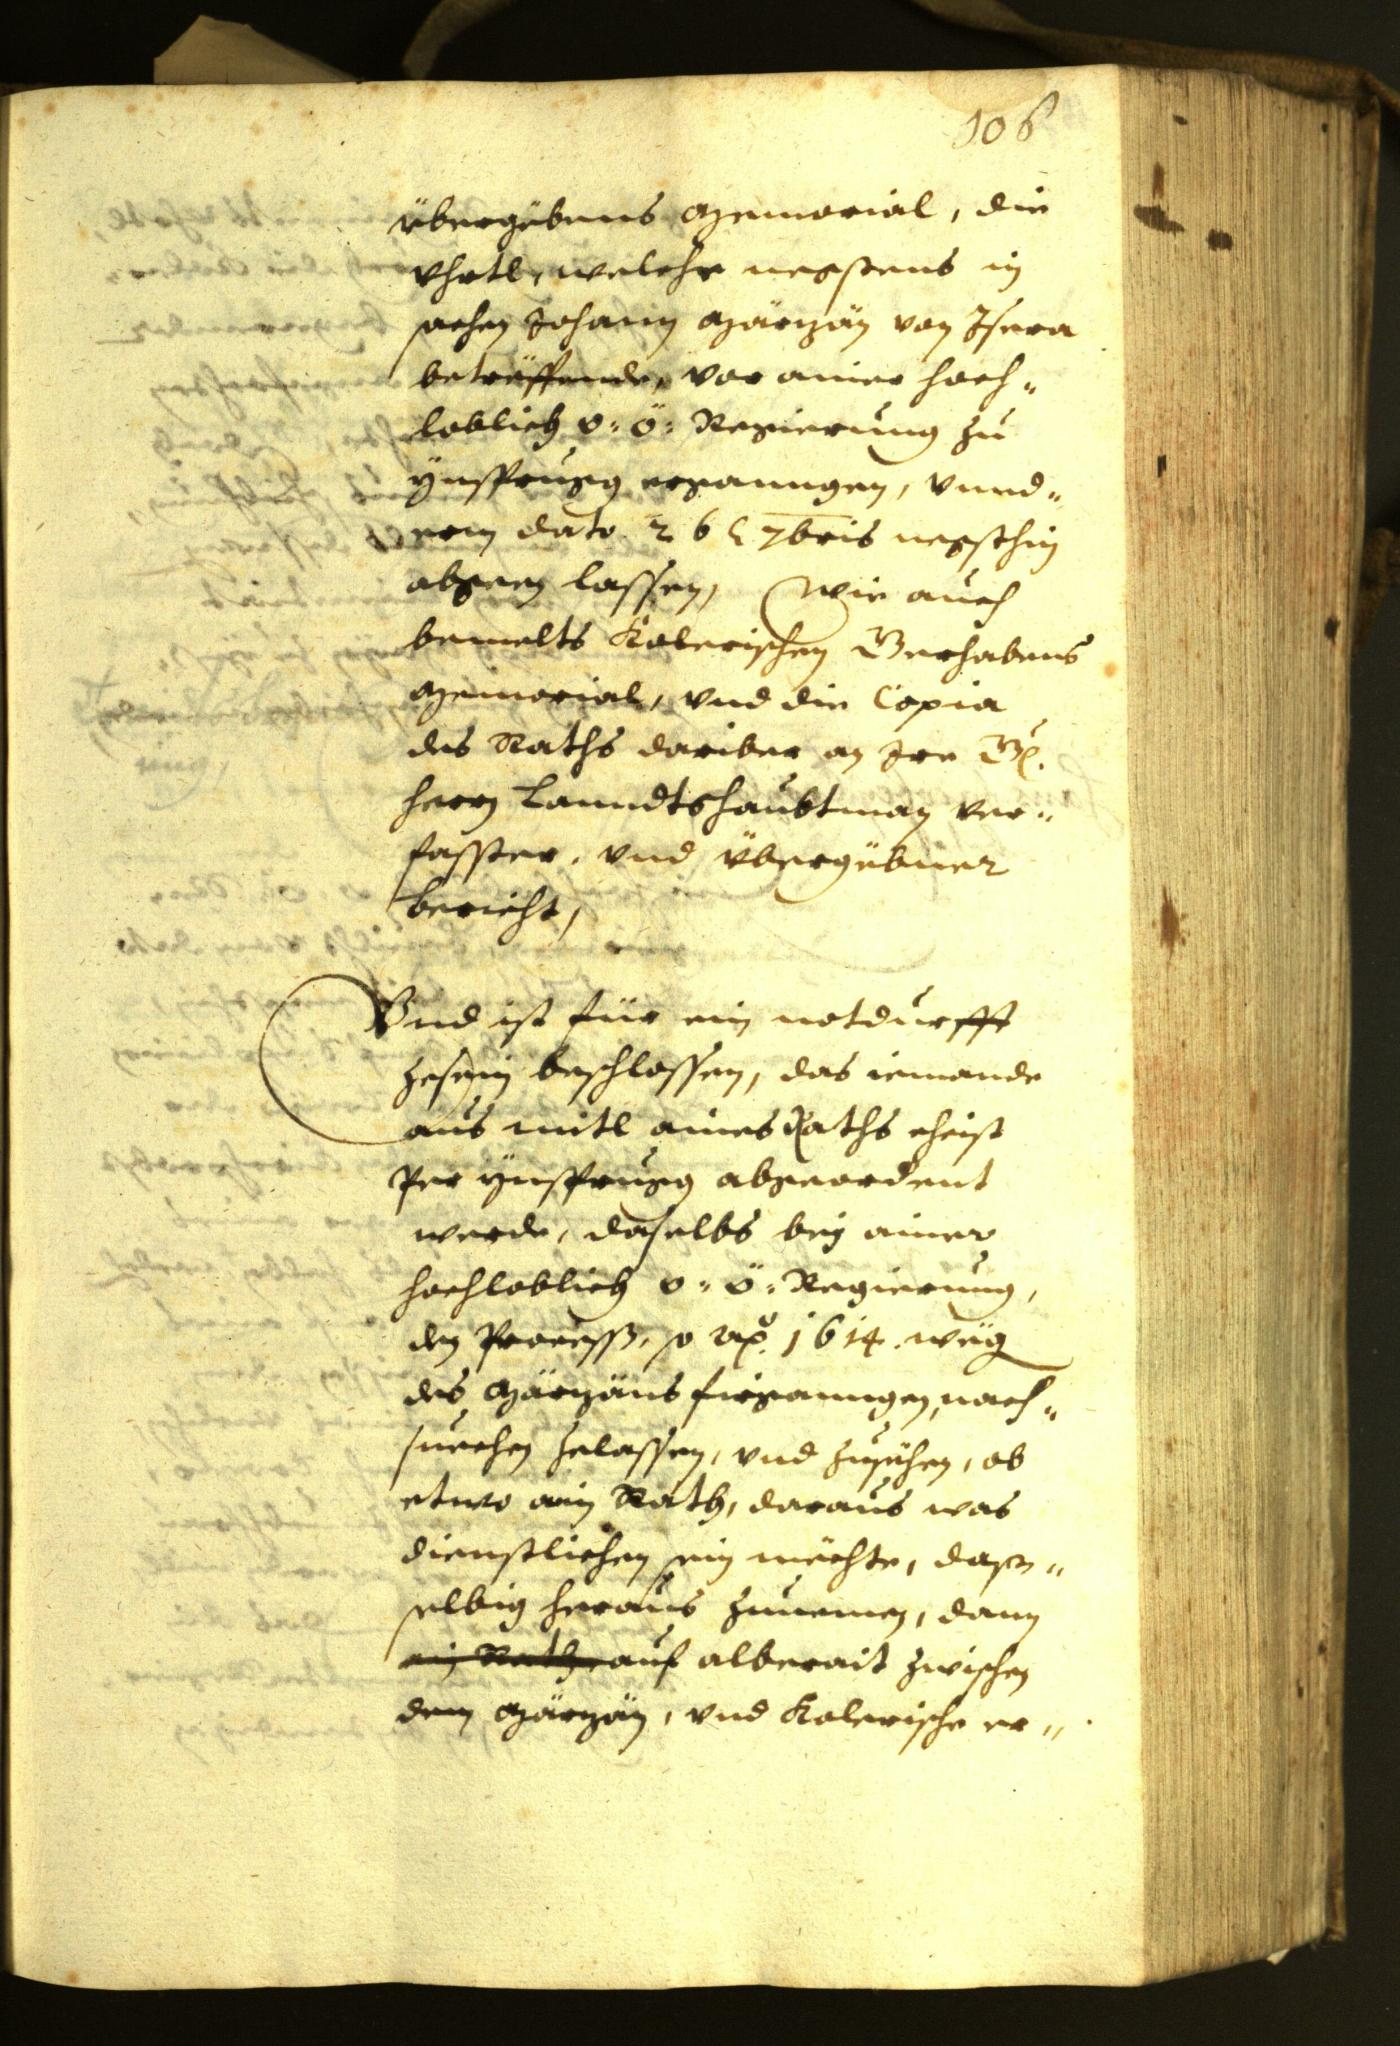 106
übergebens Memorial, die
Vhrtl, welche negstens in
sachen Johann Märzän von Isera
betreffende, vor ainer hoch-
loblich o: ö: Regierung zu
Ynsprugg ergangen, vnnd
dato 26 7bris negsthin
abgeen lassen, Wie auch
bemelts Kolerischen Gerhabens
Memorial, vnd die Copia
des Raths dariber an Ire
herrn Lanndtshaubtman ver-
fasster, vnd übergebner
bericht,
Vnd ist für ein notdurfft
zesein beschlossen, das iemande
aus mitl aines Raths eheist
per Ynsprugg abgeordent
werde, daselbs bey ainer
hochloblich o: ö: Regierung,
den Process, so 1614. weg
des Märzäns firgangen, nach-
suechen zelassen, vnd zusehen, ob
etwo ain Rath, daraus was
dienstlichen sein mechte, dass-
selbig heraus zunemen, dann
ein Rath auf alberait zwischen
dem Märzän, vnd Kolerische er-